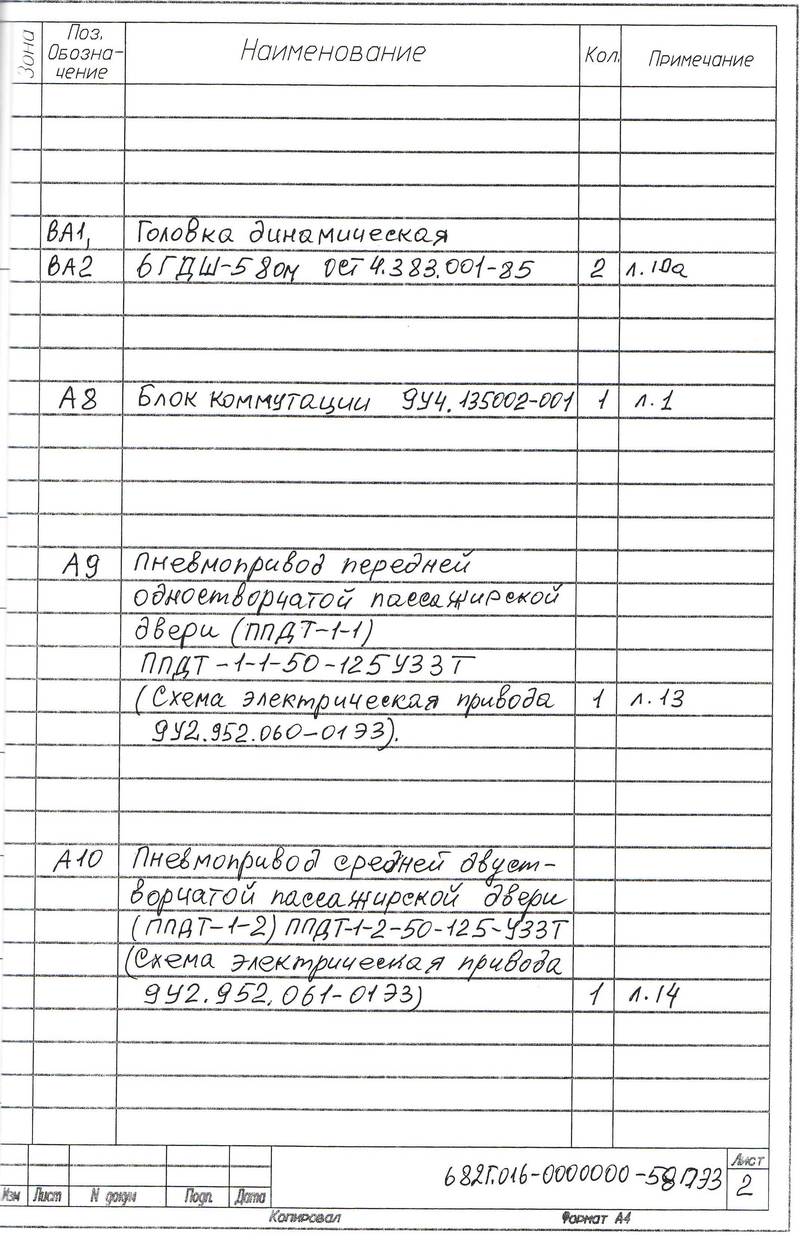 Зона
Поз. Обозна- чение
Наименование
Кол.
Примечание
ВА1, Головка динамическая
ВА2 6ГДШ-5 8ом ОСТ 4.383.001-85 2 л.10а
А8 Блок коммутации 9У4.135002-001 1 л.1
А9 Пневмопривод передней
одностворчатой пассажирской
двери (ППДТ-1-1)
ППДТ-1-1-50-125У33Т
(Схема электрическая привода 1 л.13
9У2.952.060-01Э3).
А10 Пневмопривод средней двуст-
ворчатой пассажирской двери
(ППДТ-1-2) ППДТ-1-2-50-125-У33Т
(Схема электрическая привода
9У2.952.061-01Э3) 1 л.14
682Г.016-0000000-58ПЭ3
Лист
2
Изм Лист N докум Подп. Дата
Копировал Формат А4